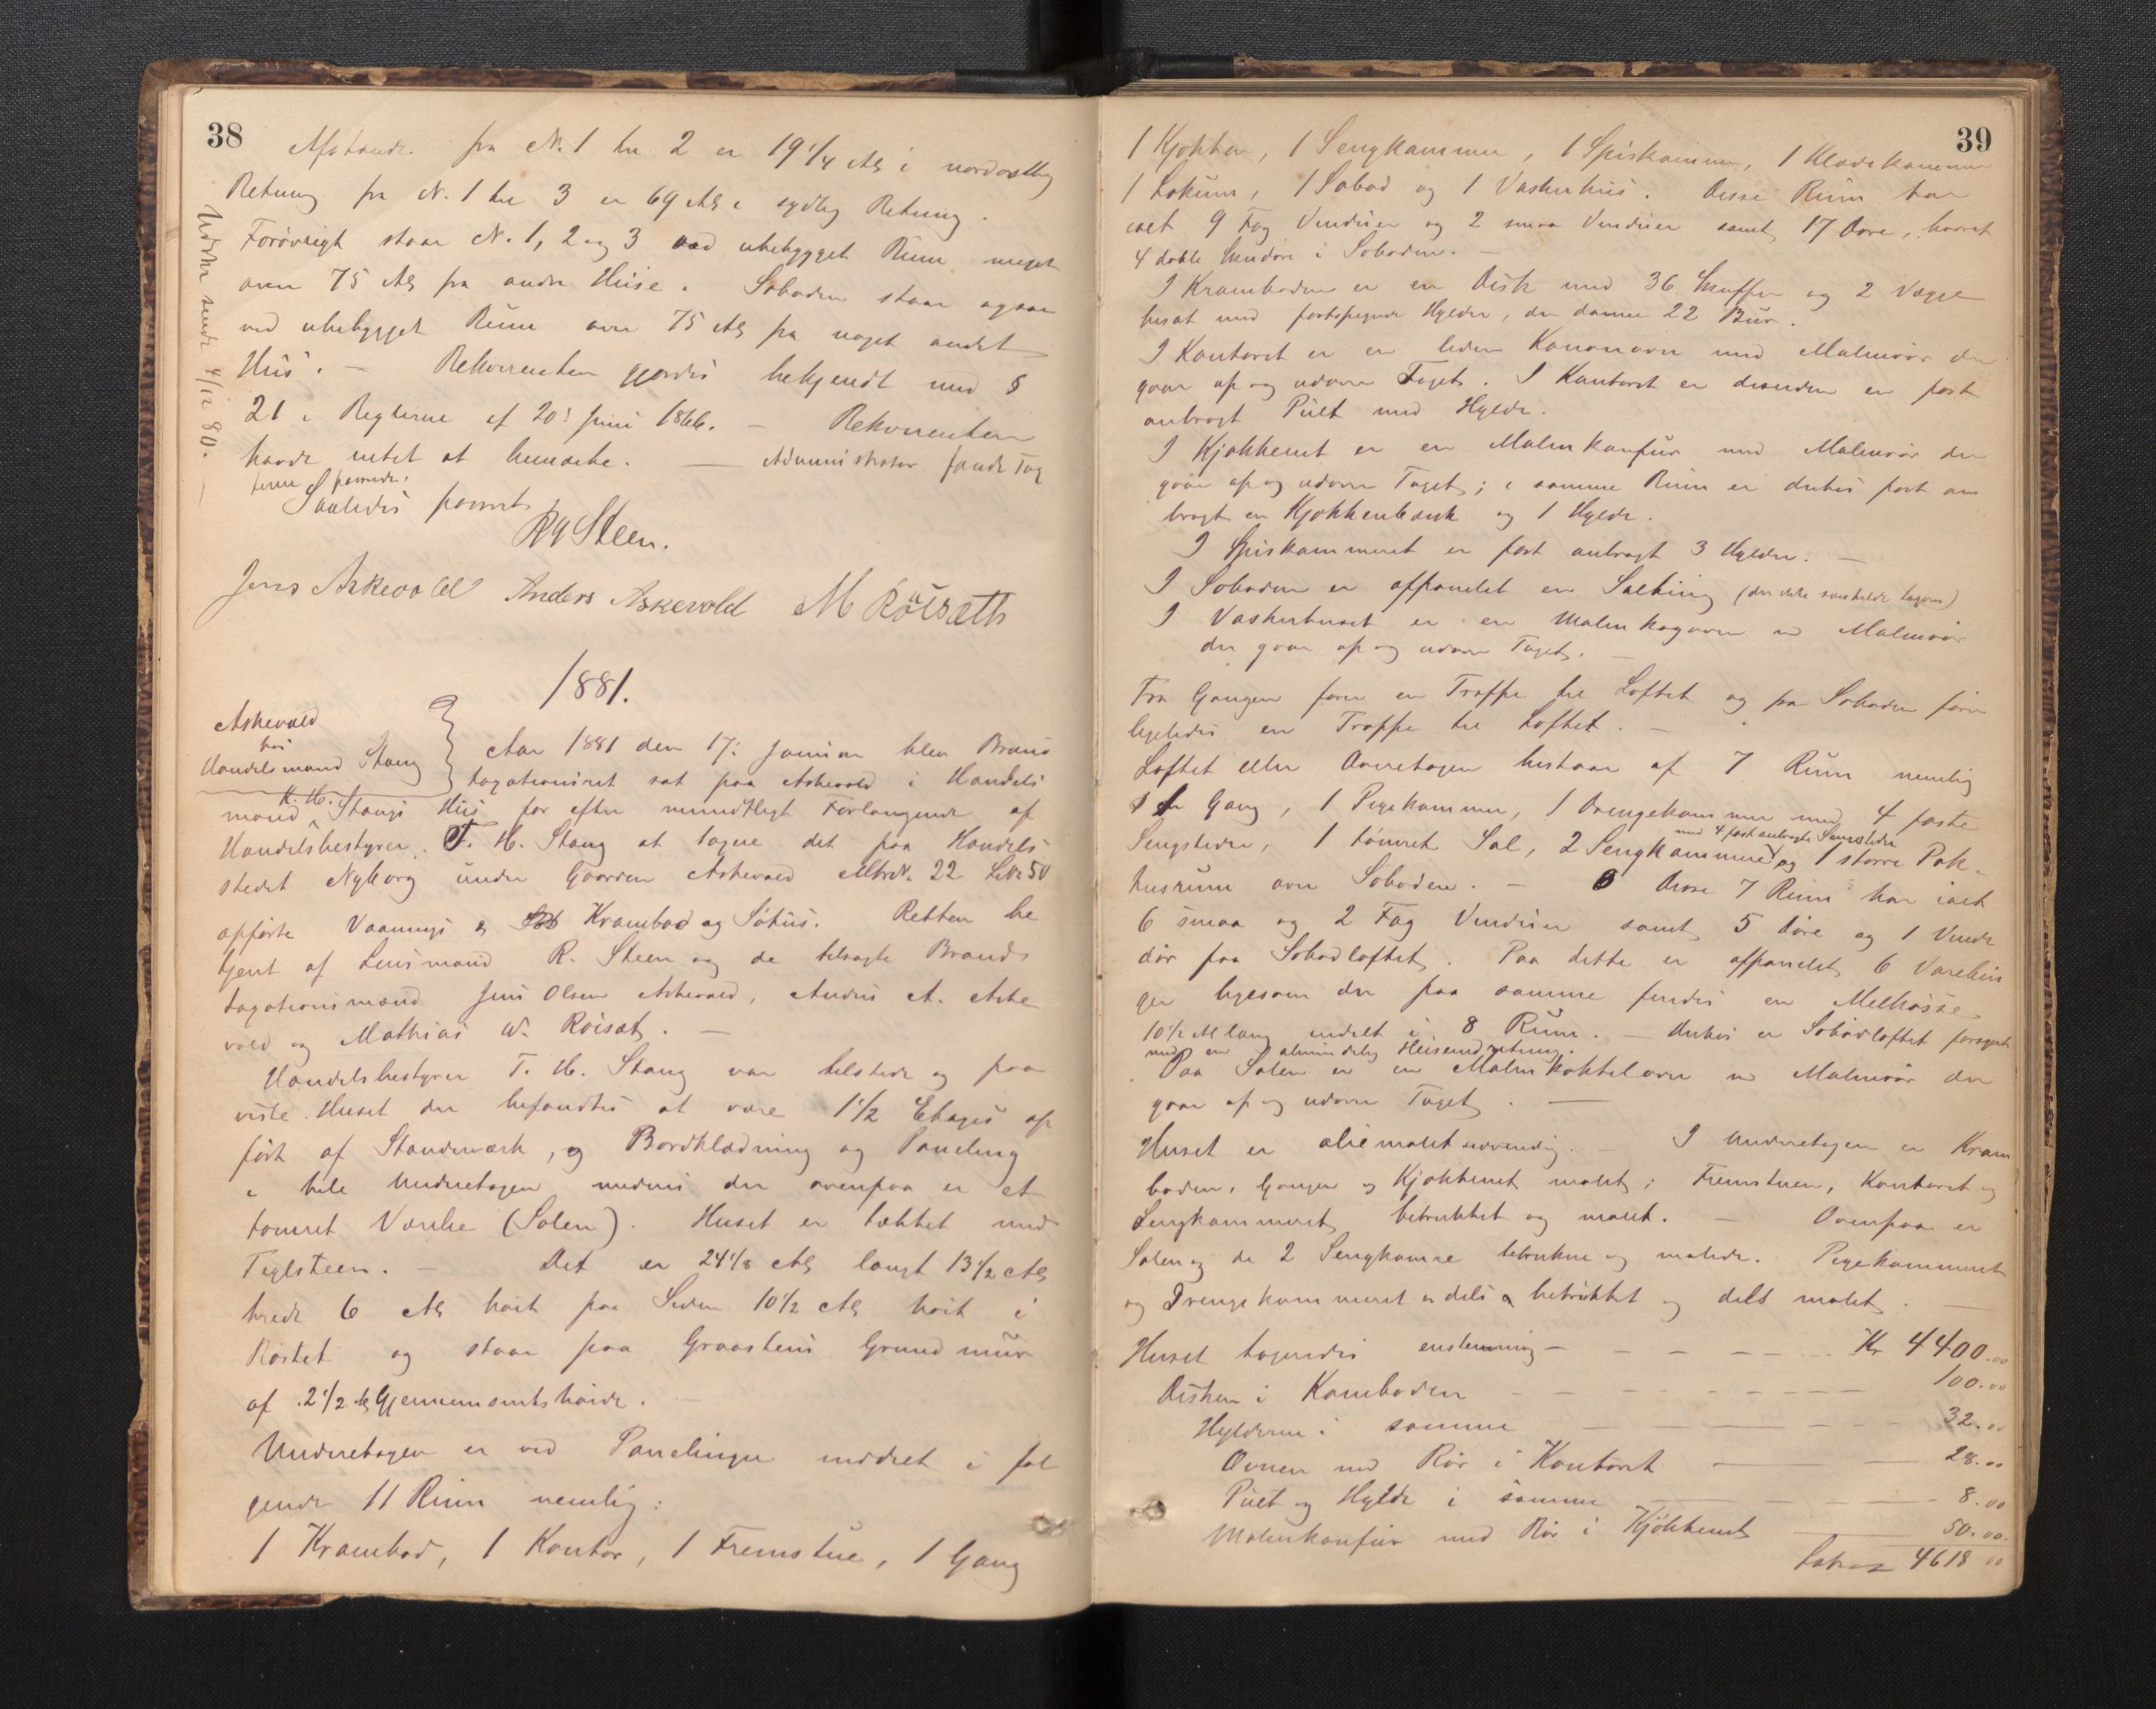 38
Afstanden fra N. 1 til 2 er 19 1/4 Al i nordostlig
Retning fra N. 1 til 3 er 69 Al i sydlig Retning.
Forøvrigt staar N. 1, 2 og 3 ved ubebygget Rum meget
over 75 Al fra andre Huse. Søboden staar ogsaa
ved ubebygget Rum over 75 Al fra noget andet
Hus. — Rekvirenten gjordes bekjendt med §
21 i Reglerne af 20: Juni 1866. — Rekvirenten
havde intet at bemærke. — Administrator fandt Tax
terne passende.
Saaledes passeret
R Steen.
Jens Askevold Anders Askevold M Röisæth
Udskr sendt 4/12 80. —
1881.
Askevold
hos
Handelsmand Stang
Aar 1881 den 17: Januar blev Brand
taxationsret sat paa Askevold i Handels
mand H. H. Stangs Hus for efter mundtligt Forlangende af
Handelsbestyrer T. H. Stang at taxere det paa Handels
stedet Nyborg under Gaarden Askevold Mtr.N. 22 L.N. 50
opførte Vaanings og Krambod og Søhus. Retten be
tjent af Lensmand R. Steen og de tilsagte Brand
taxationsmænd Jens Olsen Askevold, Anders A. Aske
vold og Mathias W. Röisæt. —
Handelsbestyrer T. H. Stang var tilstede og paa
viste Huset der befandtes at være 1 1/2 Etages op
ført af Standværk, og Bordklædning og Paneling
i hele Underetagen medens der ovenpaa er et
tømret Værelse (Salen). Huset er tækket med
Teglsteen. — Det er 24 1/8 Al langt 13 1/2 Al
bredt 6 Al høit paa Siden 10 1/2 Al høit i
Røstet og staar paa Graastens Grundmur
af 2 1/2 Al Gjennemsnitshøide. —
Underetagen er ved Panelinger inddelt i føl
gende 11 Rum nemlig:
1 Krambod, 1 Kontor, 1 Fremstue, 1 Gang
39
1 Kjøkken, 1 Sengkammer, 1 Spiskammer, 1 Klædekammer
1 Lokum, 1 Søbod og 1 Vaskerhus. Disse Rum har
ialt 9 Fag Vinduer og 2 smaa Vinduer samt 17 Døre, hvoraf
4 doble i Søboden. —
I Kramboden er en Disk med 36 Skuffer og 2 Vægge
besat med Hylder, der danne 22 Rum.
I Kontoret er en liden Kanonovn med Malmrør der
gaar op og udover Taget. I Kontoret er desuden en fast
anbragt Pult med Hylde.
I Kjøkkenet er en Malmkomfur med Malmrør der
gaar op og udover Taget; i samme Rum er derhos fast an
bragt en Kjøkkenbænk og 1 Hylde.
I Spiskammeret er fast anbragt 3 Hylder. —
I Søboden er afpanelet en Saltbing (der ikke særskildt taxeres)
I Vaskerhuset er en Malmkogeovn m Malmrør
der gaar op og udover Taget. —
Fra Gangen fører en Trappe til Loftet og fra Søboden fører
ligeledes en Trappe til Loftet. —
Loftet eller Overetagen bestaar af 7 Rum nemlig
1 Gang, 1 Pigekammer, 1 Drengekammer med 4 faste
Sengsteder, 1 tømret Sal, 2 Sengkammere med 4 fast anbragte Sengsteder og 1 større Pak-
husrum over Søboden. — Disse 7 Rum har ialt
6 smaa og 2 Fag Vinduer samt 5 Døre og 1 Vinde
dør paa Søbodloftet. Paa dette er afpanelet 6 Varebin
ger ligesom der paa samme findes en Melkasse
10 1/2 Al lang inddelt i 8 Rum. — Derhos er Søbodloftet forsynet
med en almindelig Heiseindretning.
Paa Salen er en Malmkakkelovn m Malmrør der
gaar op og udover Taget. —
Huset er oliemalet udvendig. — I Underetagen er Kram
boden, Gangen og Kjøkkenet malet; Fremstuen, Kontoret og
Sengkammeret betrukket og malet. — Ovenpaa er
Salen og de 2 Sengkamre betrukne og malede. Pigekammeret
og Drengekammeret er dels betrukket og dels malet. —
Huset taxeredes enstemmig — Kr 4400.00
Disken i Kramboden — 100.00
Hylderne i samme — 32.00
Ovnen med Rør i Kontoret — 28.00
Pult og Hylde i samme — 8.00
Malmkomfur med Rør i Kjøkkenet — 50.00
Latus 4618 00